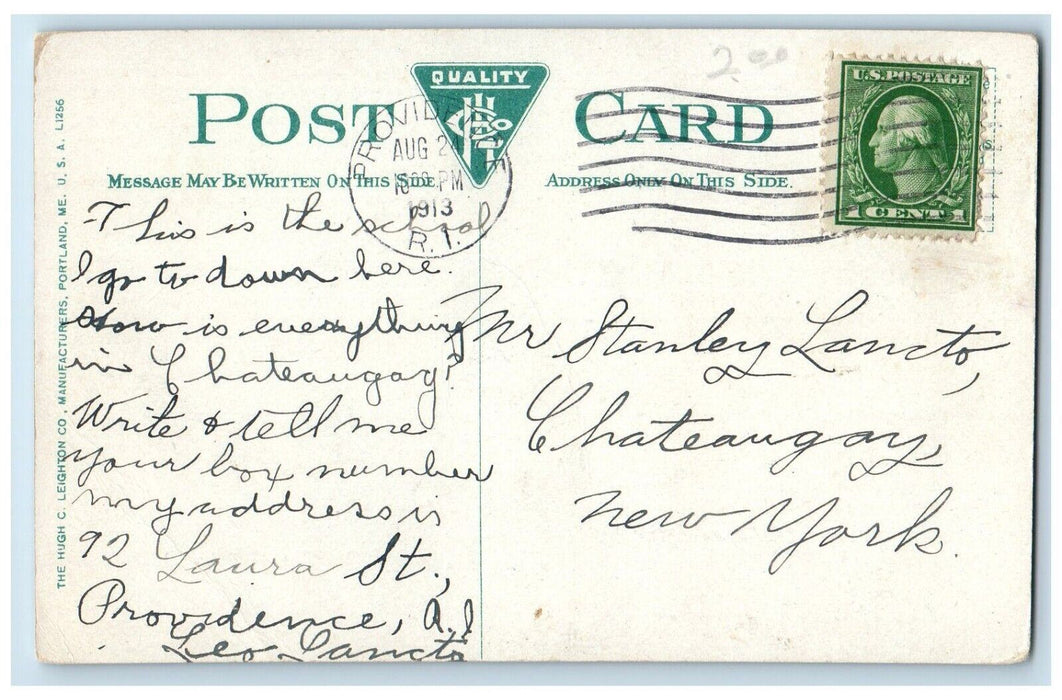 2.00
QUALITY
POST CARD
U.S. POSTAGE
1 CENT 1
PROVIDENCE
AUG 2
PM
1913
R.I.
MESSAGE MAY BE WRITTEN ON THIS SIDE.
ADDRESS ONLY ON THIS SIDE.
THE HUGH C. LEIGHTON CO., MANUFACTURERS, PORTLAND, ME. U. S. A. L1256
This is the school
I go to down here.
How is everything
in Chateaugay?
Write & tell me
your box number
my address is
92 Laura St.,
Providence, R.I
Leo Lancto
Mr Stanley Lancto,
Chateaugay,
New York.